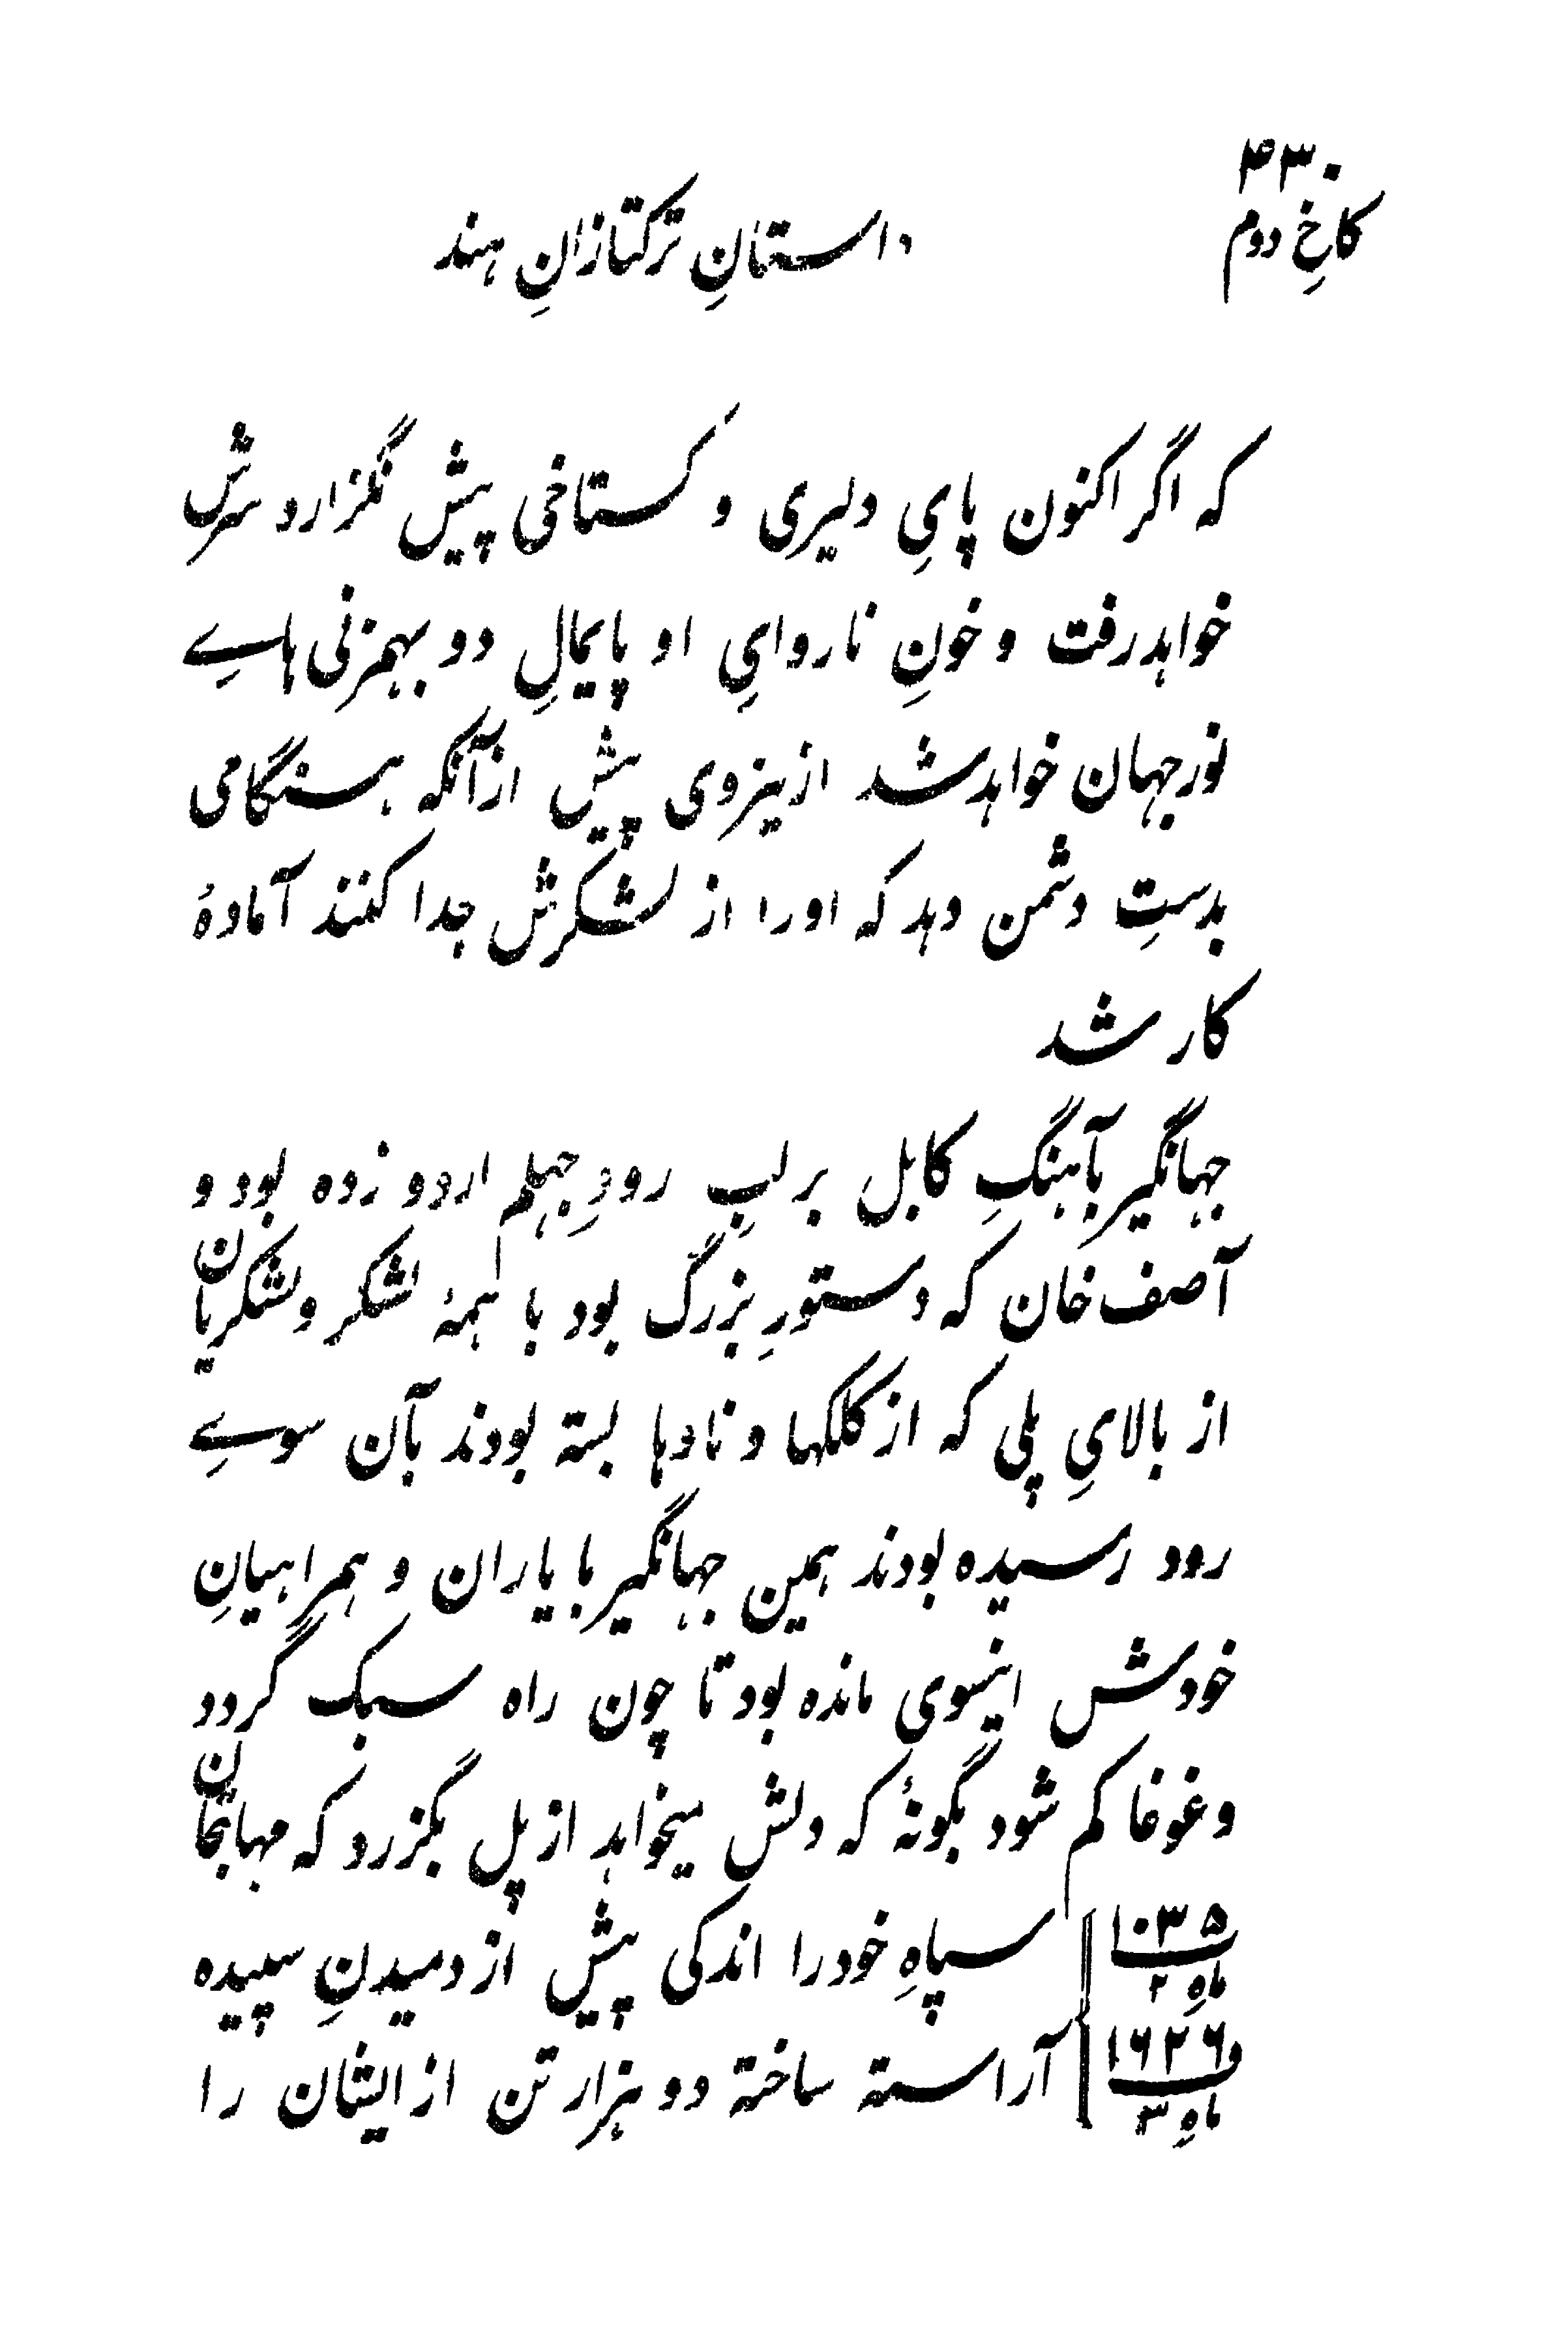 ۴۳۰
کاخِ دوم
داستانِ ترکتازانِ هند
که اگر اکنون پایِ دلیری و گستاخی پیش نگزارد سرش
خواهد رفت و خونِ ناروایِ او پایمالِ دو بهمزنی هاےِ
نورجهان خواهد شد ازینروی پیش ازآنکه هنگامی
بدستِ دشمن دهد که او را از لشکرش جدا کنند آمادهٔ
کار شد
جهانگیر بآهنگِ کابل بر لبِ رودِ جهلم اردو زده بود و
آصف خان که دستورِ بزرگ بود با همهٔ لشکر و لشکریان
از بالایِ پلی که از کلکها و نادها بسته بودند بآن سوےِ
رود رسیده بودند همین جهانگیر با یاران و همراهیانِ
خودش اینسوی مانده بود تا چون راه سبک گردد
و غوغا کم شود بگونهٔ که دلش میخواهد از پل بگزرد که مهابتخان
۱۰۳۵ سپاهِ خود را اندکی پیش از دمیدنِ سپیده
ماهِ ۲
و ۱۶۲۶ آراسته ساخته دو هزار تن از ایشان را
ماهِ ۳